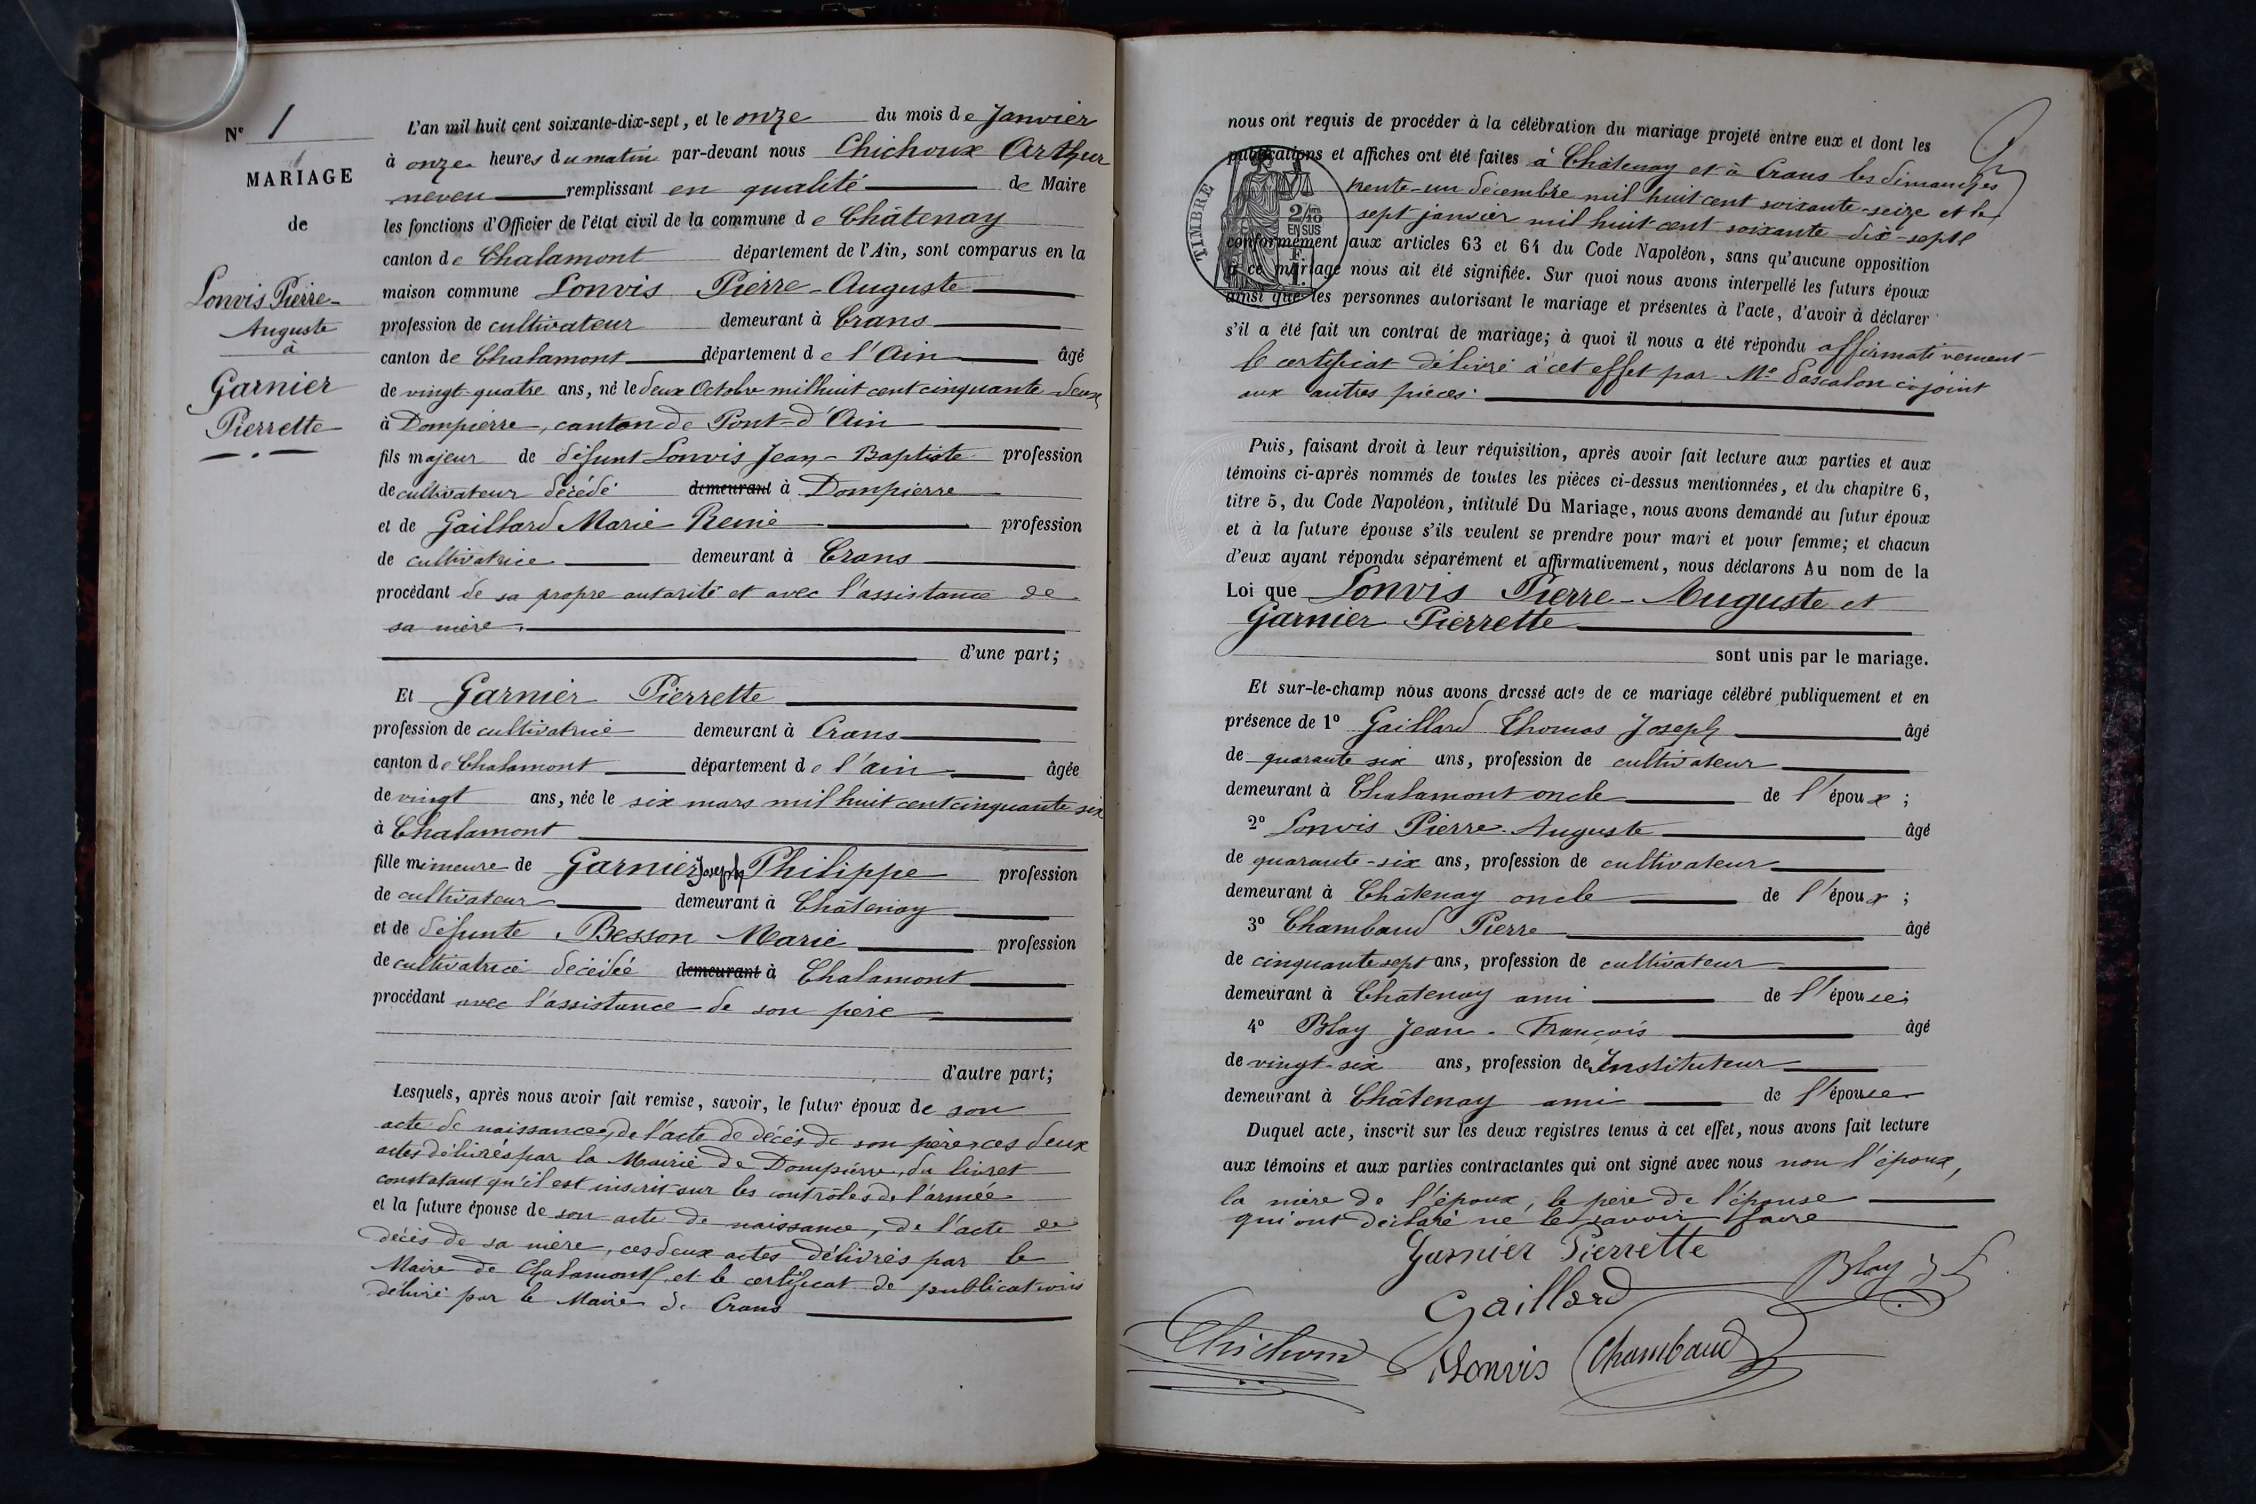 N° 1
MARIAGE
de
Lonvis Pierre-
Auguste
à
Garnier
Pierrette
L'an mil huit cent soixante-dix-sept, et le onze du mois de Janvier
à onze heures du matin par-devant nous Chichoux Arthur
neveu remplissant en qualité de Maire
les fonctions d'Officier de l'état civil de la commune de Châtenay
canton de Chalamont département de l'Ain, sont comparus en la
maison commune Lonvis Pierre-Auguste
profession de cultivateur demeurant à Crans
canton de Chalamont département de l'Ain âgé
de vingt-quatre ans, né le deux Octobre mil huit cent cinquante-deux
à Dompierre, canton de Pont-d'Ain
fils majeur de défunt Lonvis Jean-Baptiste profession
de cultivateur décédé demeurant à Dompierre
et de Gaillard Marie Reine profession
de cultivatrice demeurant à Crans
procédant de sa propre autorité et avec l'assistance de
sa mère.
d'une part;
Et Garnier Pierrette
profession de cultivatrice demeurant à Crans
canton de Chalamont département de l'ain âgée
de vingt ans, née le six mars mil huit cent cinquante six
à Chalamont
fille mineure de Garnier Joseph Philippe profession
de cultivateur demeurant à Châtenay
et de défunte Besson Marie profession
de cultivatrice décédée demeurant à Chalamont
procédant avec l'assistance de son père
d'autre part;
Lesquels, après nous avoir fait remise, savoir, le futur époux de son
acte de naissance, de l'acte de décès de son père ces deux
actes délivrés par la Mairie de Dompierre, du livret
constatant qu'il est inscrit sur les contrôles de l'armée
et la future épouse de son acte de naissance, de l'acte de
décès de sa mère, ces deux actes délivrés par le
Maire de Chalamont, et le certificat de publications
délivré par le Maire de Crans
nous ont requis de procéder à la célébration du mariage projeté entre eux et dont les
publications et affiches ont été faites à Châtenay et à Crans les dimanches
trente-un décembre mil huit cent soixante-seize et le
sept janvier mil huit cent soixante-dix-sept
TIMBRE
2/10 EN SUS
1 F.
conformément aux articles 63 et 64 du Code Napoléon, sans qu'aucune opposition
à ce mariage nous ait été signifiée. Sur quoi nous avons interpellé les futurs époux
ainsi que les personnes autorisant le mariage et présentes à l'acte, d'avoir à déclarer
s'il a été fait un contrat de mariage; à quoi il nous a été répondu affirmativement
le certificat délivré à cet effet par Me Pascalon ci-joint
aux autres pièces.
Puis, faisant droit à leur réquisition, après avoir fait lecture aux parties et aux
témoins ci-après nommés de toutes les pièces ci-dessus mentionnées, et du chapitre 6,
titre 5, du Code Napoléon, intitulé Du Mariage, nous avons demandé au futur époux
et à la future épouse s'ils veulent se prendre pour mari et pour femme; et chacun
d'eux ayant répondu séparément et affirmativement, nous déclarons Au nom de la
Loi que Lonvis Pierre-Auguste et
Garnier Pierrette
sont unis par le mariage.
Et sur-le-champ nous avons dressé acte de ce mariage célébré publiquement et en
présence de 1° Gaillard Thomas Joseph âgé
de quarante six ans, profession de cultivateur
demeurant à Chalamont oncle de l'époux;
2° Lonvis Pierre-Auguste âgé
de quarante-six ans, profession de cultivateur
demeurant à Châtenay oncle de l'époux;
3° Chambaud Pierre âgé
de cinquante sept ans, profession de cultivateur
demeurant à Châtenay ami de l'épouse;
4° Blay Jean-François âgé
de vingt-six ans, profession de Instituteur
demeurant à Châtenay ami de l'épouse
Duquel acte, inscrit sur les deux registres tenus à cet effet, nous avons fait lecture
aux témoins et aux parties contractantes qui ont signé avec nous non l'époux,
la mère de l'époux, le père de l'épouse
qui ont déclaré ne le savoir faire
Garnier Pierrette
Gaillard Blay J F
Chichoux Lonvis Chambaud